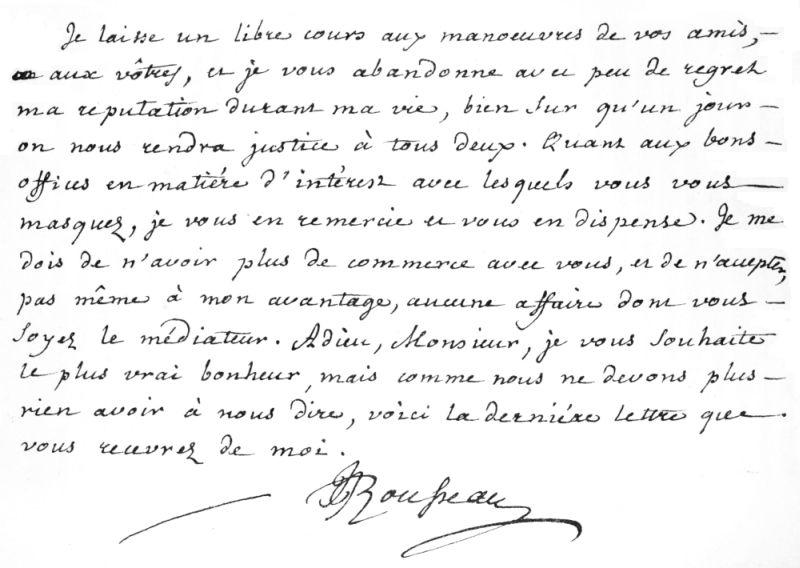 Je laisse un libre cours aux manoeuvres de vos amis, —
aux vôtres, et je vous abandonne avec peu de regret
ma reputation durant ma vie, bien sur qu'un jour —
on nous rendra justice à tous deux. Quant aux bons —
offices en matiére d'intérest avec lesquels vous vous —
masquez, je vous en remercie et vous en dispense. Je me
dois de n'avoir plus de commerce avec vous, et de n'accepter,
pas même à mon avantage, aucune affaire dont vous —
soyez le médiateur. Adieu, Monsieur, je vous souhaite
le plus vrai bonheur, mais comme nous ne devons plus —
rien avoir à nous dire, voici la derniére lettre que
vous recevrez de moi.
JJRousseau